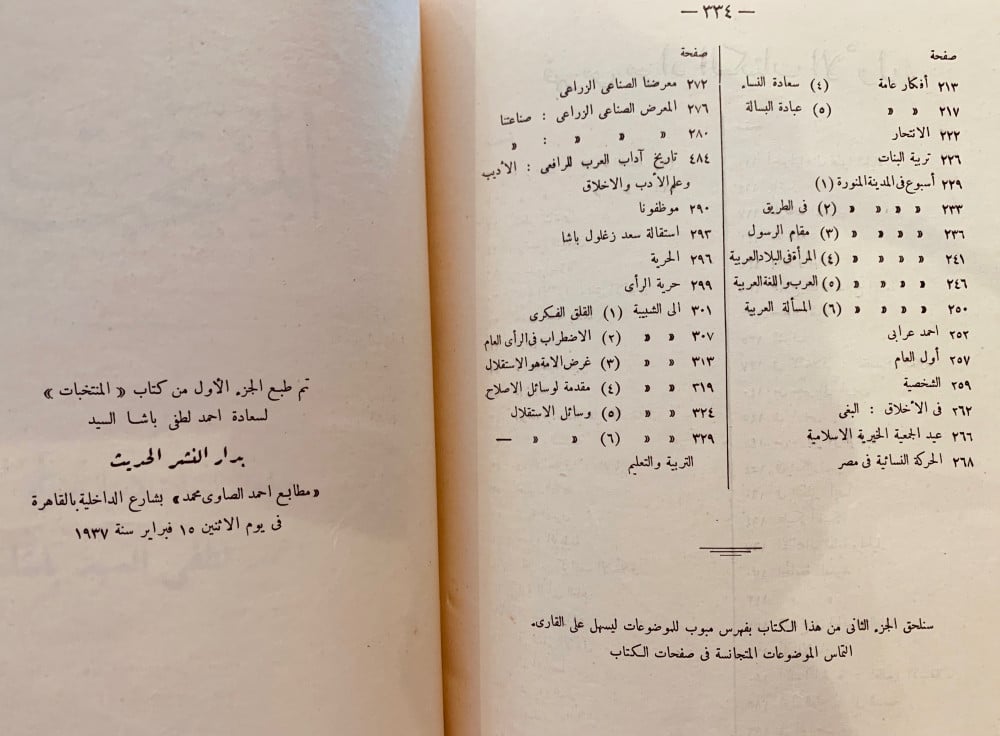 — ٣٣٤ —
صفحة
٢١٣ أفكار عامة (٤) سعادة النساء
٢١٧ » » (٥) عبادة البسالة
٢٢٢ الانتحار
٢٢٦ تربية البنات
٢٢٩ أسبوع فى المدينة المنورة (١)
٢٣٣ » » » » (٢) فى الطريق
٢٣٦ » » » » (٣) مقام الرسول
٢٤١ » » » » (٤) المرأة فى البلاد العربية
٢٤٦ » » » » (٥) العرب واللغة العربية
٢٥٠ » » » » (٦) المسألة العربية
٢٥٢ احمد عرابى
٢٥٧ أول العام
٢٥٩ الشخصية
٢٦٢ فى الأخلاق : البغى
٢٦٦ عيد الجمعية الخيرية الاسلامية
٢٦٨ الحركة النسائية فى مصر
صفحة
٢٧٢ معرضنا الصناعى الزراعى
٢٧٦ المعرض الصناعى الزراعى : صناعتنا
٢٨٠ » » » : »
٤٨٤ تاريخ آداب العرب للرافعى : الأديب
وعلم الأدب والاخلاق
٢٩٠ موظفونا
٢٩٣ استقالة سعد زغلول باشا
٢٩٦ الحرية
٢٩٩ حرية الرأى
٣٠١ الى الشبيبة (١) القلق الفكرى
٣٠٧ » » (٢) الاضطراب فى الرأى العام
٣١٣ » » (٣) غرض الامة هو الاستقلال
٣١٩ » » (٤) مقدمة لوسائل الاصلاح
٣٢٤ » » (٥) وسائل الاستقلال
٣٢٩ » » (٦) » » —
التربية والتعليم
سنلحق الجزء الثانى من هذا الكتاب بفهرس مبوب للموضوعات ليسهل على القارىء
التماس الموضوعات المتجانسة فى صفحات الكتاب
تم طبع الجزء الأول من كتاب « المنتخبات »
لسعادة احمد لطفى باشا السيد
بدار النشر الحديث
« مطابع احمد الصاوى محمد » بشارع الداخلية بالقاهرة
فى يوم الاثنين ١٥ فبراير سنة ١٩٣٧